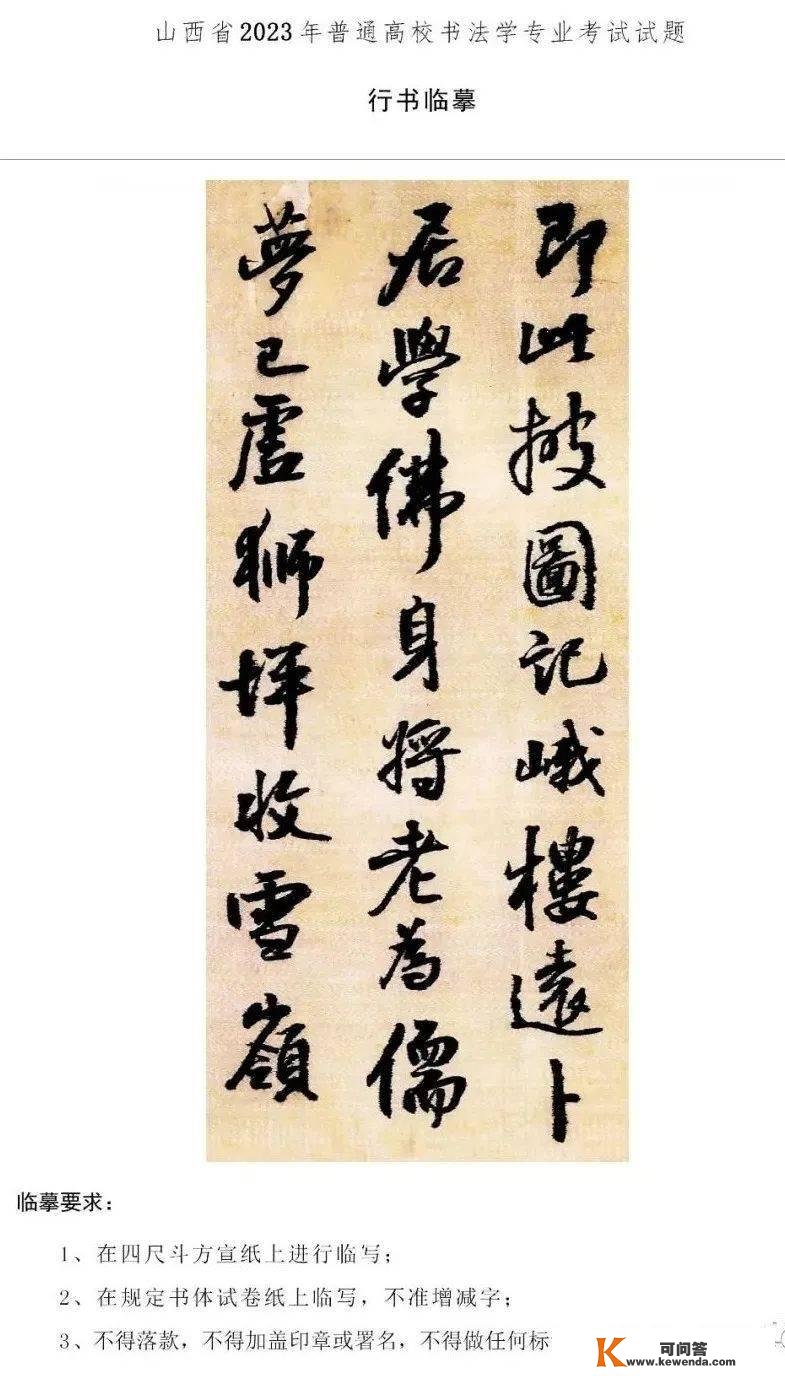 山西省2023年普通高校书法学专业考试试题
行书临摹
即此披圖記峨樓遠卜
居學佛身將老為儒
夢已虛獅坪收雪嶺
临摹要求：
1、在四尺斗方宣纸上进行临写；
2、在规定书体试卷纸上临写，不准增减字；
3、不得落款，不得加盖印章或署名，不得做任何标
K 可问答
www.kewenda.com